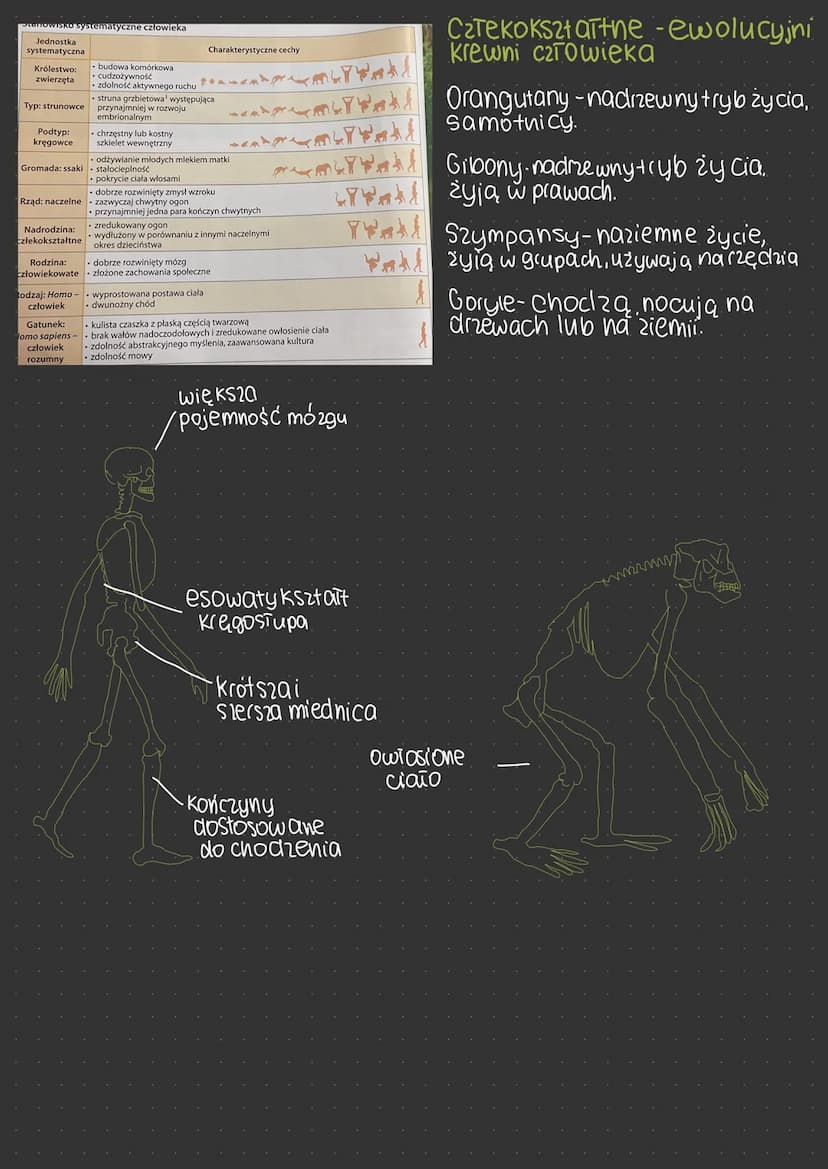 Stanowisko systematyczne człowieka
Jednostka systematyczna
Charakterystyczne cechy
Królestwo: zwierzęta
• budowa komórkowa
• cudzożywność
• zdolność aktywnego ruchu
Typ: strunowce
• struna grzbietowa¹ występująca
przynajmniej w rozwoju
embrionalnym
Podtyp: kręgowce
• chrzęstny lub kostny
szkielet wewnętrzny
Gromada: ssaki
• odżywianie młodych mlekiem matki
• stałocieplność
• pokrycie ciała włosami
Rząd: naczelne
• dobrze rozwinięty zmysł wzroku
• zazwyczaj chwytny ogon
• przynajmniej jedna para kończyn chwytnych
Nadrodzina: człekokształtne
• zredukowany ogon
• wydłużony w porównaniu z innymi naczelnymi
okres dzieciństwa
Rodzina: człowiekowate
• dobrze rozwinięty mózg
• złożone zachowania społeczne
Rodzaj: Homo – człowiek
• wyprostowana postawa ciała
• dwunożny chód
Gatunek: Homo sapiens – człowiek rozumny
• kulista czaszka z płaską częścią twarzową
• brak wałów nadoczodołowych i zredukowane owłosienie ciała
• zdolność abstrakcyjnego myślenia, zaawansowana kultura
• zdolność mowy
Człekokształtne - ewolucyjni
krewni człowieka
Orangutany - nadrzewny tryb życia,
samotnicy.
Gibony - nadrzewny tryb życia.
żyją w prawach.
Szympansy - naziemne życie,
żyją w grupach, używają narzędzia
Goryle - chodzą, nocują na
drzewach lub na ziemii.
większa
pojemność mózgu
esowaty kształt
kręgosłupa
krótsza i
szersza miednica
kończyny
dostosowane
do chodzenia
owłosione
ciało